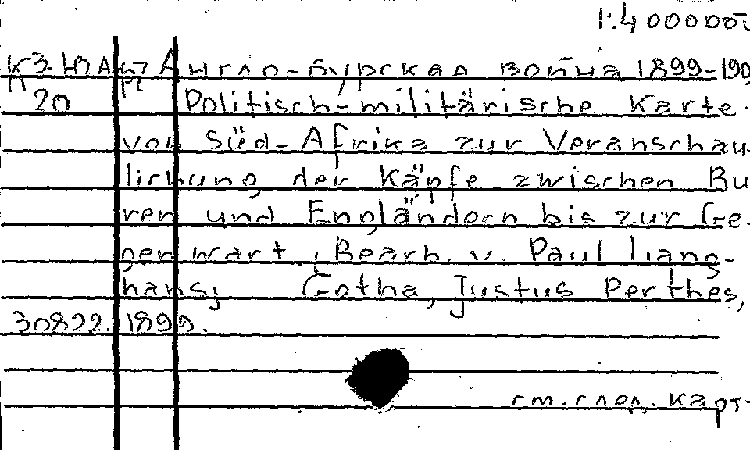 1:4 000000
К3-ЮАф Англо-бурская война 1899-190
20 Politisch-militärische Karte.
von Süd-Afrika zur Veranschau
lichung der Käpfe zwischen Bu
ren und Engländern bis zur Ge-
genwart. Bearb. v. Paul Lang-
hans; Gotha, Justus Perthes,
30822. 1899.
см. след. карт-